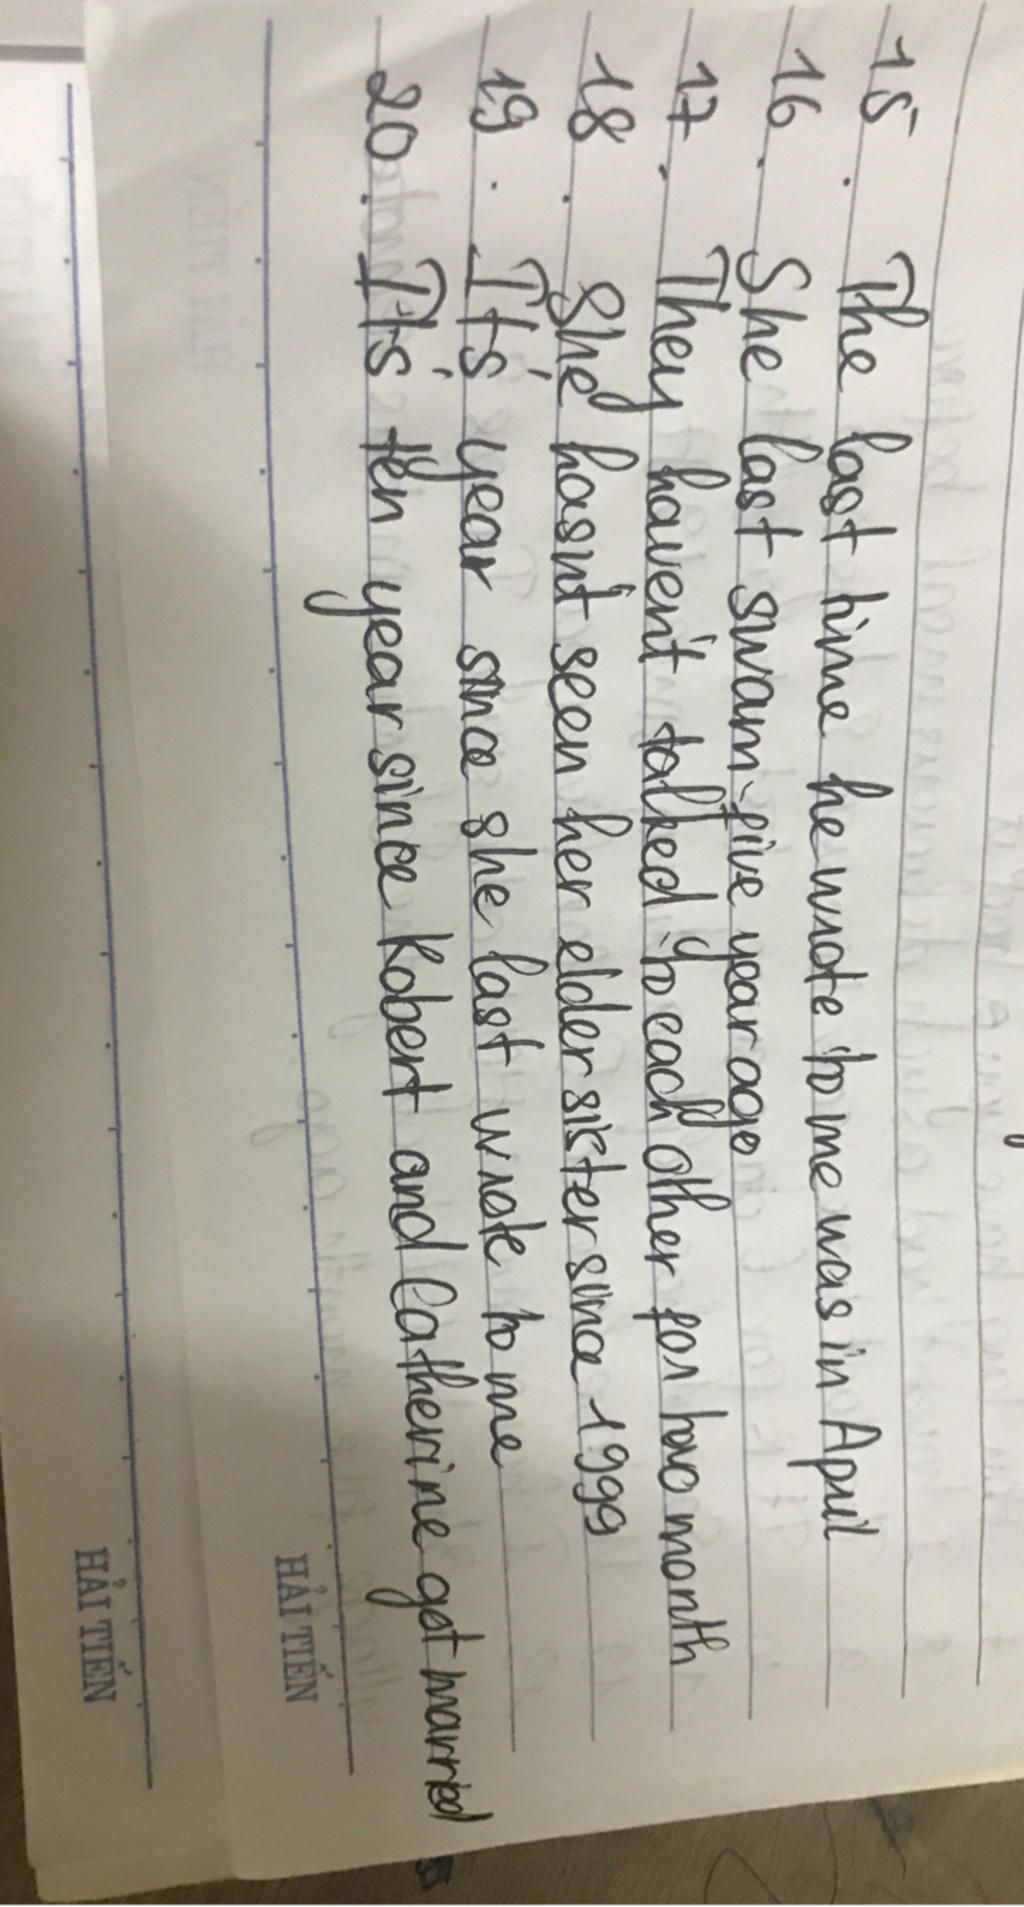 15. The last time he wrote to me was in April
16. She last swam five year ago
17. They haven't talked to each other for two month
18. She hasn't seen her elder sister since 1999
19. It's year since she last wrote to me
20. It's ten year since Robert and Catherine got married
HẢI TIẾN
HẢI TIẾN